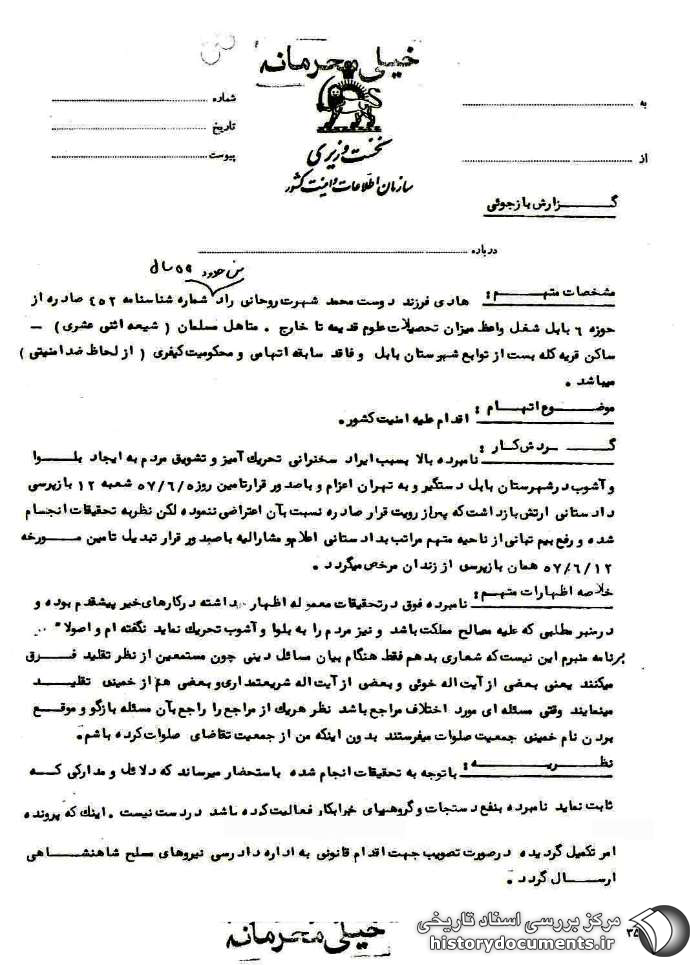 خیلی محرمانه
به
شماره
تاریخ
از
پیوست
نخست وزیری
سازمان اطلاعات و امنیت کشور
گزارش بازجوئی
درباره
سن حدود ۵۹ سال
مشخصات متهم : هادی فرزند دوست محمد شهرت روحانی راد شماره شناسنامه ۴۵۲ صادره از
حوزه ۶ بابل شغل واعظ میزان تحصیلات علوم قدیمه تا خارج . متاهل مسلمان ( شیعه اثنی عشری ) –
ساکن قریه کله بست از توابع شهرستان بابل و فاقد سابقه اتهامی و محکومیت کیفری ( از لحاظ ضد امنیتی )
میباشد .
موضوع اتهام : اقدام علیه امنیت کشور .
گردش کار : نامبرده بالا بسبب ایراد سخنرانی تحریک آمیز و تشویق مردم به ایجاد بلوا
و آشوب در شهرستان بابل دستگیر و به تهران اعزام و با صدور قرار تامین روز ۵۷/۶/۵ شعبه ۱۲ بازپرسی
دادستانی ارتش بازداشت که پس از رویت قرار صادره نسبت بآن اعتراضی ننموده لکن نظر به تحقیقات انجام
شده و رفع بیم تبانی از ناحیه متهم مراتب بدادستانی اعلام و مشارالیه با صدور قرار تبدیل تامین مورخه
۵۷/۶/۱۲ همان بازپرسی از زندان مرخص میگردد .
خلاصه اظهارات متهم : نامبرده فوق در تحقیقات معموله اظهار داشته در کارهای خیر پیشقدم بوده و
در منبر مطلبی که علیه مصالح مملکت باشد و نیز مردم را به بلوا و آشوب تحریک نماید نگفته ام و اصولا"
برنامه منبرم این نیست که شعاری بدهم فقط هنگام بیان مسائل دینی چون مستمعین از نظر تقلید فرق
میکنند یعنی بعضی از آیت اله خوئی و بعضی از آیت اله شریعتمداری و بعضی هم از خمینی تقلید
مینمایند وقتی مسئله ای مورد اختلاف مراجع باشد نظر هریک از مراجع را راجع بآن مسئله بازگو و موقع
بردن نام خمینی جمعیت صلوات میفرستند بدون اینکه من از جمعیت تقاضای صلوات کرده باشم .
نظریه : با توجه به تحقیقات انجام شده باستحضار میرساند که دلائل و مدارکی که
ثابت نماید نامبرده بنفع دستجات و گروههای خرابکار فعالیت کرده باشد در دست نیست . اینک که پرونده
امر تکمیل گردیده در صورت تصویب جهت اقدام قانونی به اداره دادرسی نیروهای مسلح شاهنشاهی
ارسال گردد .
خیلی محرمانه
مرکز بررسی اسناد تاریخی
historydocuments.ir